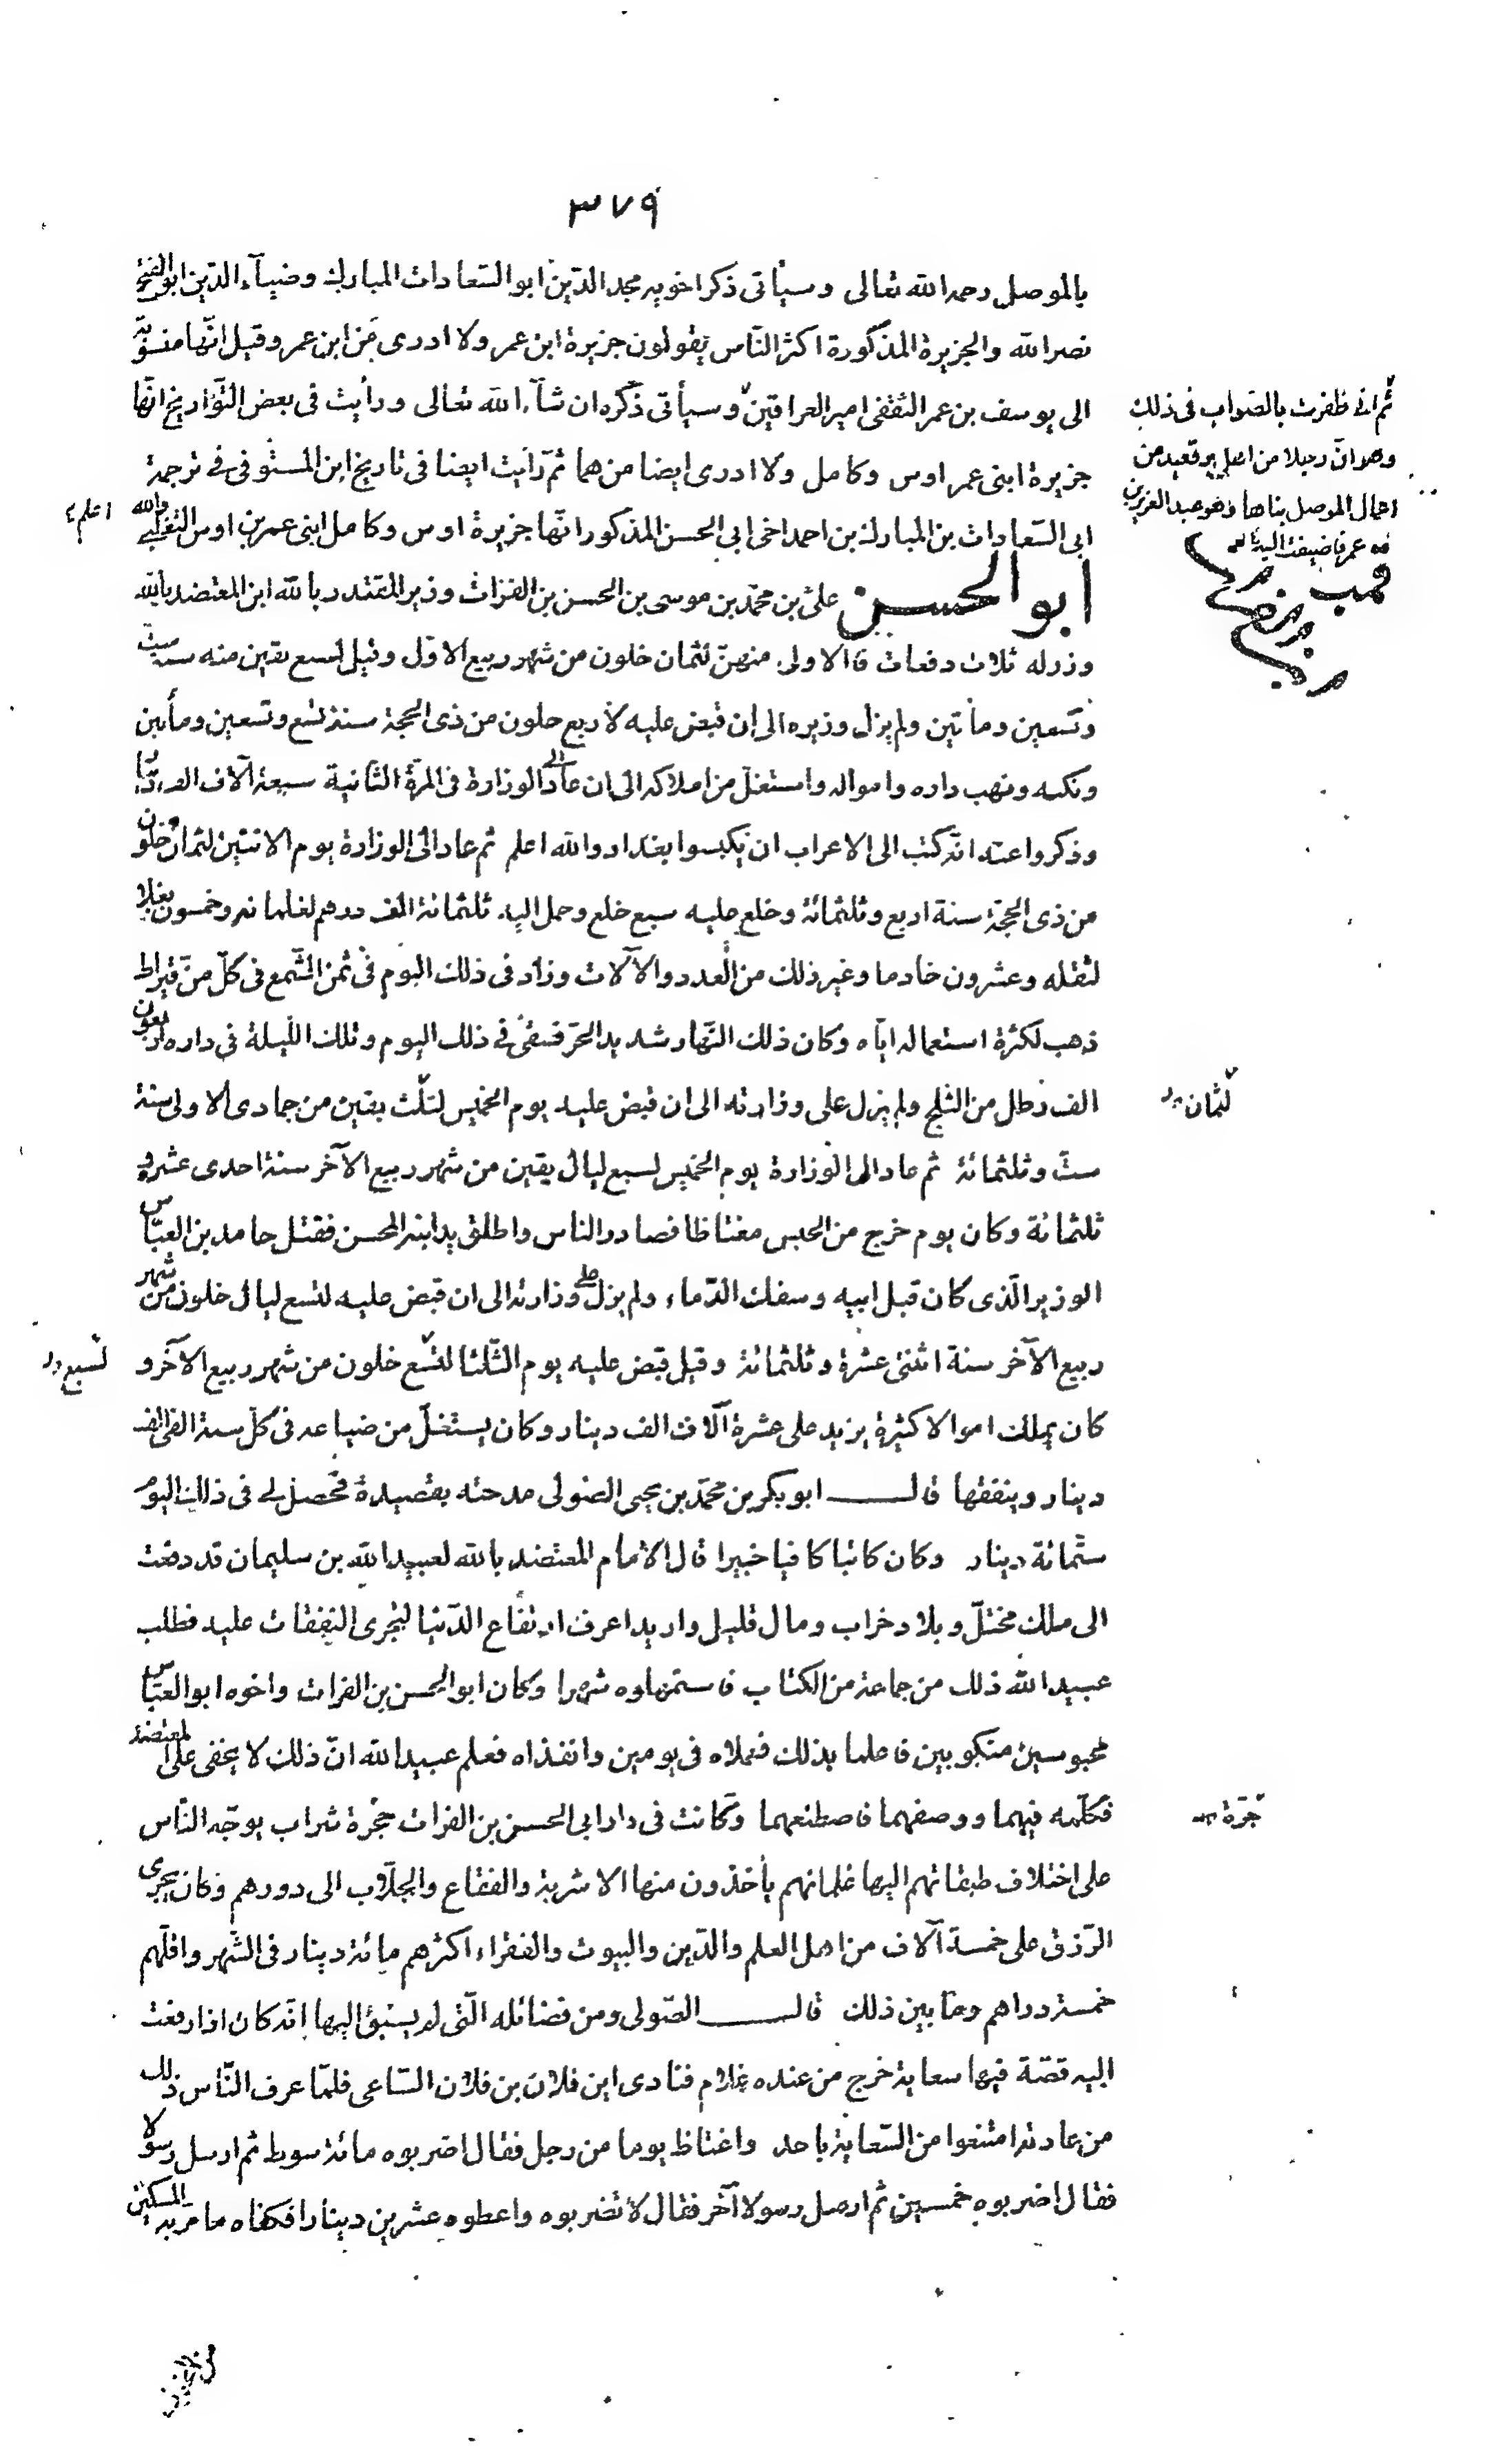 ٣٧٩
بالموصل رحمه الله تعالى وسيأتى ذكر اخويه مجد الدّين ابو السّعادات المبارك وضيآء الدّين ابو الفتح
نصر الله والجزيرة المذكورة اكثر النّاس يقولون جزيرة ابن عمر ولا ادرى من ابن عمر وقيل انّها منسوبة
الى يوسف بن عمر الثقفى امير العراقين وسيأتى ذكره ان شآء الله تعالى ورأيت فى بعض التّواريخ انّها
جزيرة ابنى عمر اوس وكامل ولا ادرى ايضا من هما ثمّ رأيت ايضا فى تاريخ ابن المستوفى فى ترجمة
ابى السّعادات بن المبارك بن احمد اخى ابى الحسن المذكور انّها جزيرة اوس وكامل ابنى عمر بن اوس التغلبى والله اعلم
ثم انى ظفرت بالصّواب فى ذلك
وهو انّ رجلا من اهل برقعيد من
اعمال الموصل بناها وهو عبد العزيز بن
عمر فاضيفت اليه
ابو الحسن علىّ بن محمّد بن موسى بن الحسن بن الفرات وزير المقتدر بالله ابن المعتضد بالله
وزر له ثلاث دفعات فالاولى منهنّ لثمان خلون من شهر ربيع الاوّل وقيل لسبع بقين منه سنه ست
وتسعين ومأتين ولم يزل وزيره الى ان قبض عليه لأربع خلون من ذى الحجّة سنة تسع وتسعين ومأتين
ونكبه ونهب داره وامواله واستغلّ من املاكه الى ان عاد الى الوزارة فى المرّة الثّانية سبعة آلاف الف دينار
وذكروا عنه انّه كتب الى الاعراب ان يكبسوا بغداد والله اعلم ثم عاد الى الوزارة يوم الاثنين لثمان خلون
من ذى الحجّة سنة اربع وثلثمائة وخلع عليه سبع خلع وحمل اليه ثلثمائة الف درهم لغلمانه وخمسون بغلا
لثقله وعشرون خادما وغير ذلك من العدد والآلات وزاد فى ذلك اليوم فى ثمن الشّمع فى كلّ منّ قيراط
ذهب لكثرة استعماله ايّاه وكان ذلك النّهار شديد الحرّ فسقى فى ذلك اليوم وتلك اللّيلة فى داره اربعون
الف رطل من الثلج ولم يزل على وزارته الى ان قبض عليه يوم الخميس لثلث بقين من جمادى الاولى سنة
لثمان
ستّ وثلثمائة ثم عاد الى الوزارة يوم الخميس لسبع ليال بقين من شهر ربيع الآخر سنة احدى عشر و
ثلثمائة وكان يوم خرج من الحبس مغتاظا فصادر الناس واطلق يد ابنه المحسن فقتل حامد بن العبّاس
الوزير الّذى كان قبل ابيه وسفك الدّماء ولم يزل على وزارته الى ان قبض عليه لتسع ليال خلون من شهر
ربيع الآخر سنة اثنتى عشرة وثلثمائة وقيل قبض عليه يوم الثّلثا لتسع خلون من شهر ربيع الآخر و
لسبع
كان يملك اموالا كثيرة يزيد على عشرة آلاف الف دينار وكان يستغلّ من ضياعه فى كلّ سنة الفى الف
دينار وينفقها قال ابو بكر بن محمّد بن يحيى الصّولى مدحته بقصيدة فحصل لى فى ذلك اليوم
ستّمائة دينار وكان كاتبا كافيا خبيرا قال الأمام المعتضد بالله لعبيد الله بن سليمان قد دفعت
الى ملك مختلّ وبلاد خراب ومال قليل واريد اعرف ارتفاع الدّنيا لتجرى النفقات عليه فطلب
عبيد الله ذلك من جماعة من الكتاب فاستمهلوه شهرا وكان ابو الحسن بن الفرات واخوه ابو العبّاس
محبوسين منكوبين فاعلما بذلك فعملاه فى يومين وانفذاه فعلم عبيد الله انّ ذلك لا يخفى على المعتضد
فكلّمه فيهما ووصفهما فاصطنعهما وكانت فى دار ابى الحسن بن الفرات حجرة شراب يوجّه النّاس
جرّة
على اختلاف طبقاتهم اليها غلمانهم يأخذون منها الاشربة والفقاع والجلّاب الى دورهم وكان يجرى
الرّزق على خمسة آلاف من اهل العلم والدّين والبيوت والفقراء اكثرهم مائة دينار فى الشّهر واقلّهم
خمسة دراهم وما بين ذلك قال الصّولى ومن فضائله الّتى لم يسبق اليها انّه كان اذا رفعت
اليه قصّة فيها سعاية خرج من عنده غلام فنادى اين فلان بن فلان السّاعى فلمّا عرف النّاس ذلك
من عادته امتنعوا من السّعاية باحد واغتاظ يوما من رجل فقال اضربوه مائة سوط ثم ارسل رسولا
فقال اضربوه خمسين ثم ارسل رسولا آخر فقال لا تضربوه واعطوه عشرين دينارا فكفاه ما مر به المسكين